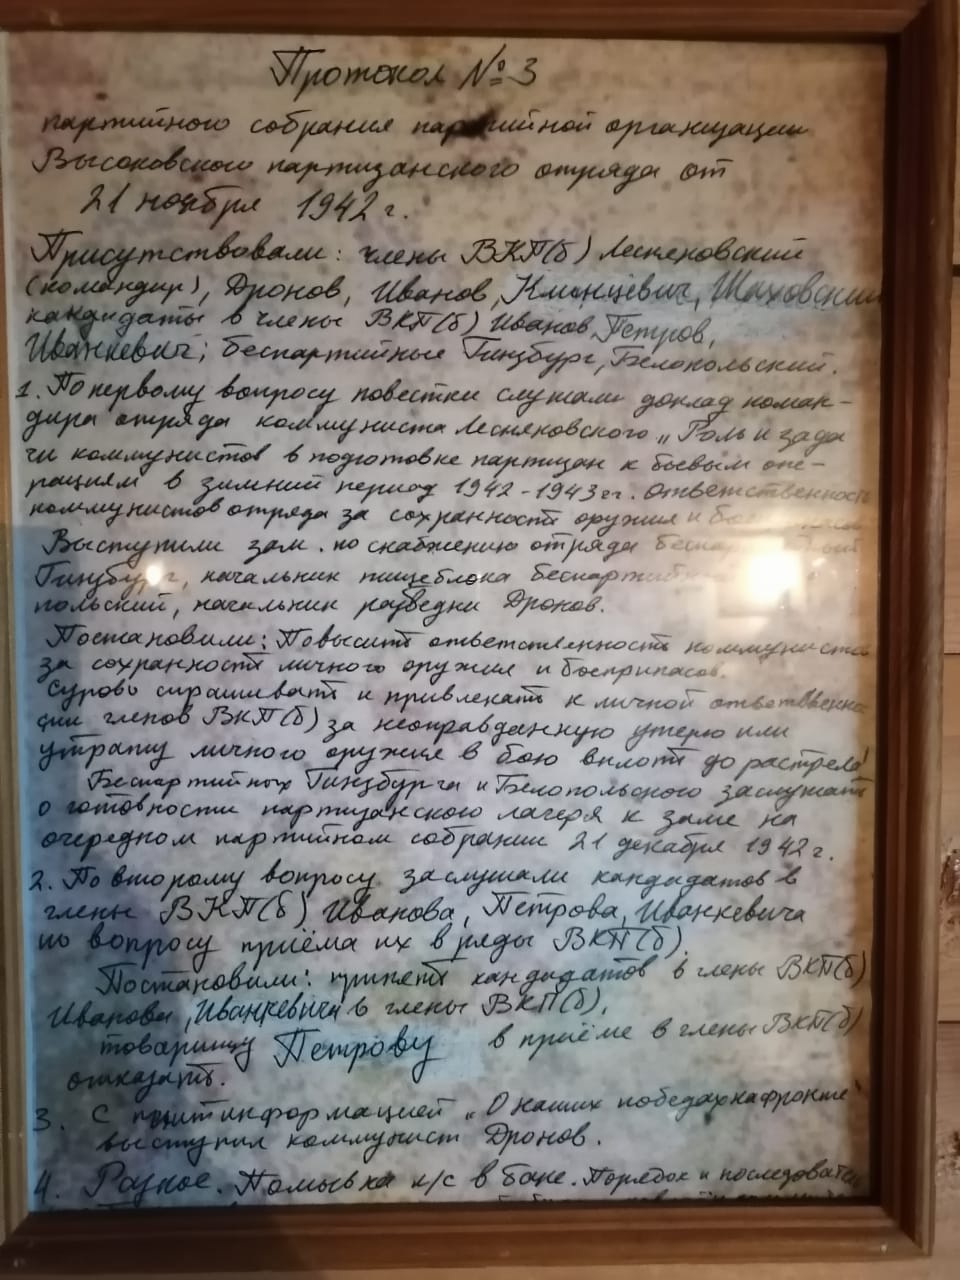 Протокол №3
партийного собрания партийной организации
Высоковского партизанского отряда от
21 ноября 1942 г.
Присутствовали: члены ВКП(б) Лесняковский
(командир), Дронов, Иванов, Климцевич, Шаховский
кандидаты в члены ВКП(б) Иванов, Петров,
Иванкевич; беспартийные Гинзбург, Белопольский.
1. По первому вопросу повестки слушали доклад коман-
дира отряда коммуниста Лесняковского „Роль и зада
чи коммунистов в подготовке партизан к боевым опе-
рациям в зимний период 1942-1943 гг. Ответственность
коммунистов отряда за сохранность оружия и
Выступили зам. по снабжению отряда
Гинзбург, начальник пищеблока
польский, начальник разведки Дронов.
Постановили: Повысить ответственность коммунистов
за сохранность личного оружия и боеприпасов.
Сурово спрашивать и привлекать к личной ответственно
сти членов ВКП(б) за неоправданную утерю или
утрату личного оружия в бою вплоть до растрела!
Беспартийных Гинзбурга и Белопольского заслушать
о готовности партизанского лагеря к заме на
очередном партийном собрании 21 декабря 1942 г.
2. По второму вопросу заслушали кандидатов в
члены ВКП(б) Иванова, Петрова, Иванкевича
по вопросу приёма их в ряды ВКП(б).
Постановили: принять кандидатов в члены ВКП(б)
Иванова, Иванкевича в члены ВКП(б),
товарищу Петрову в приёме в члены ВКП(б)
отказать.
3. С политинформацией „О наших победах на фронте"
выступил коммунист Дронов.
4. Разное. Помывка л/с в бане. Порядок и